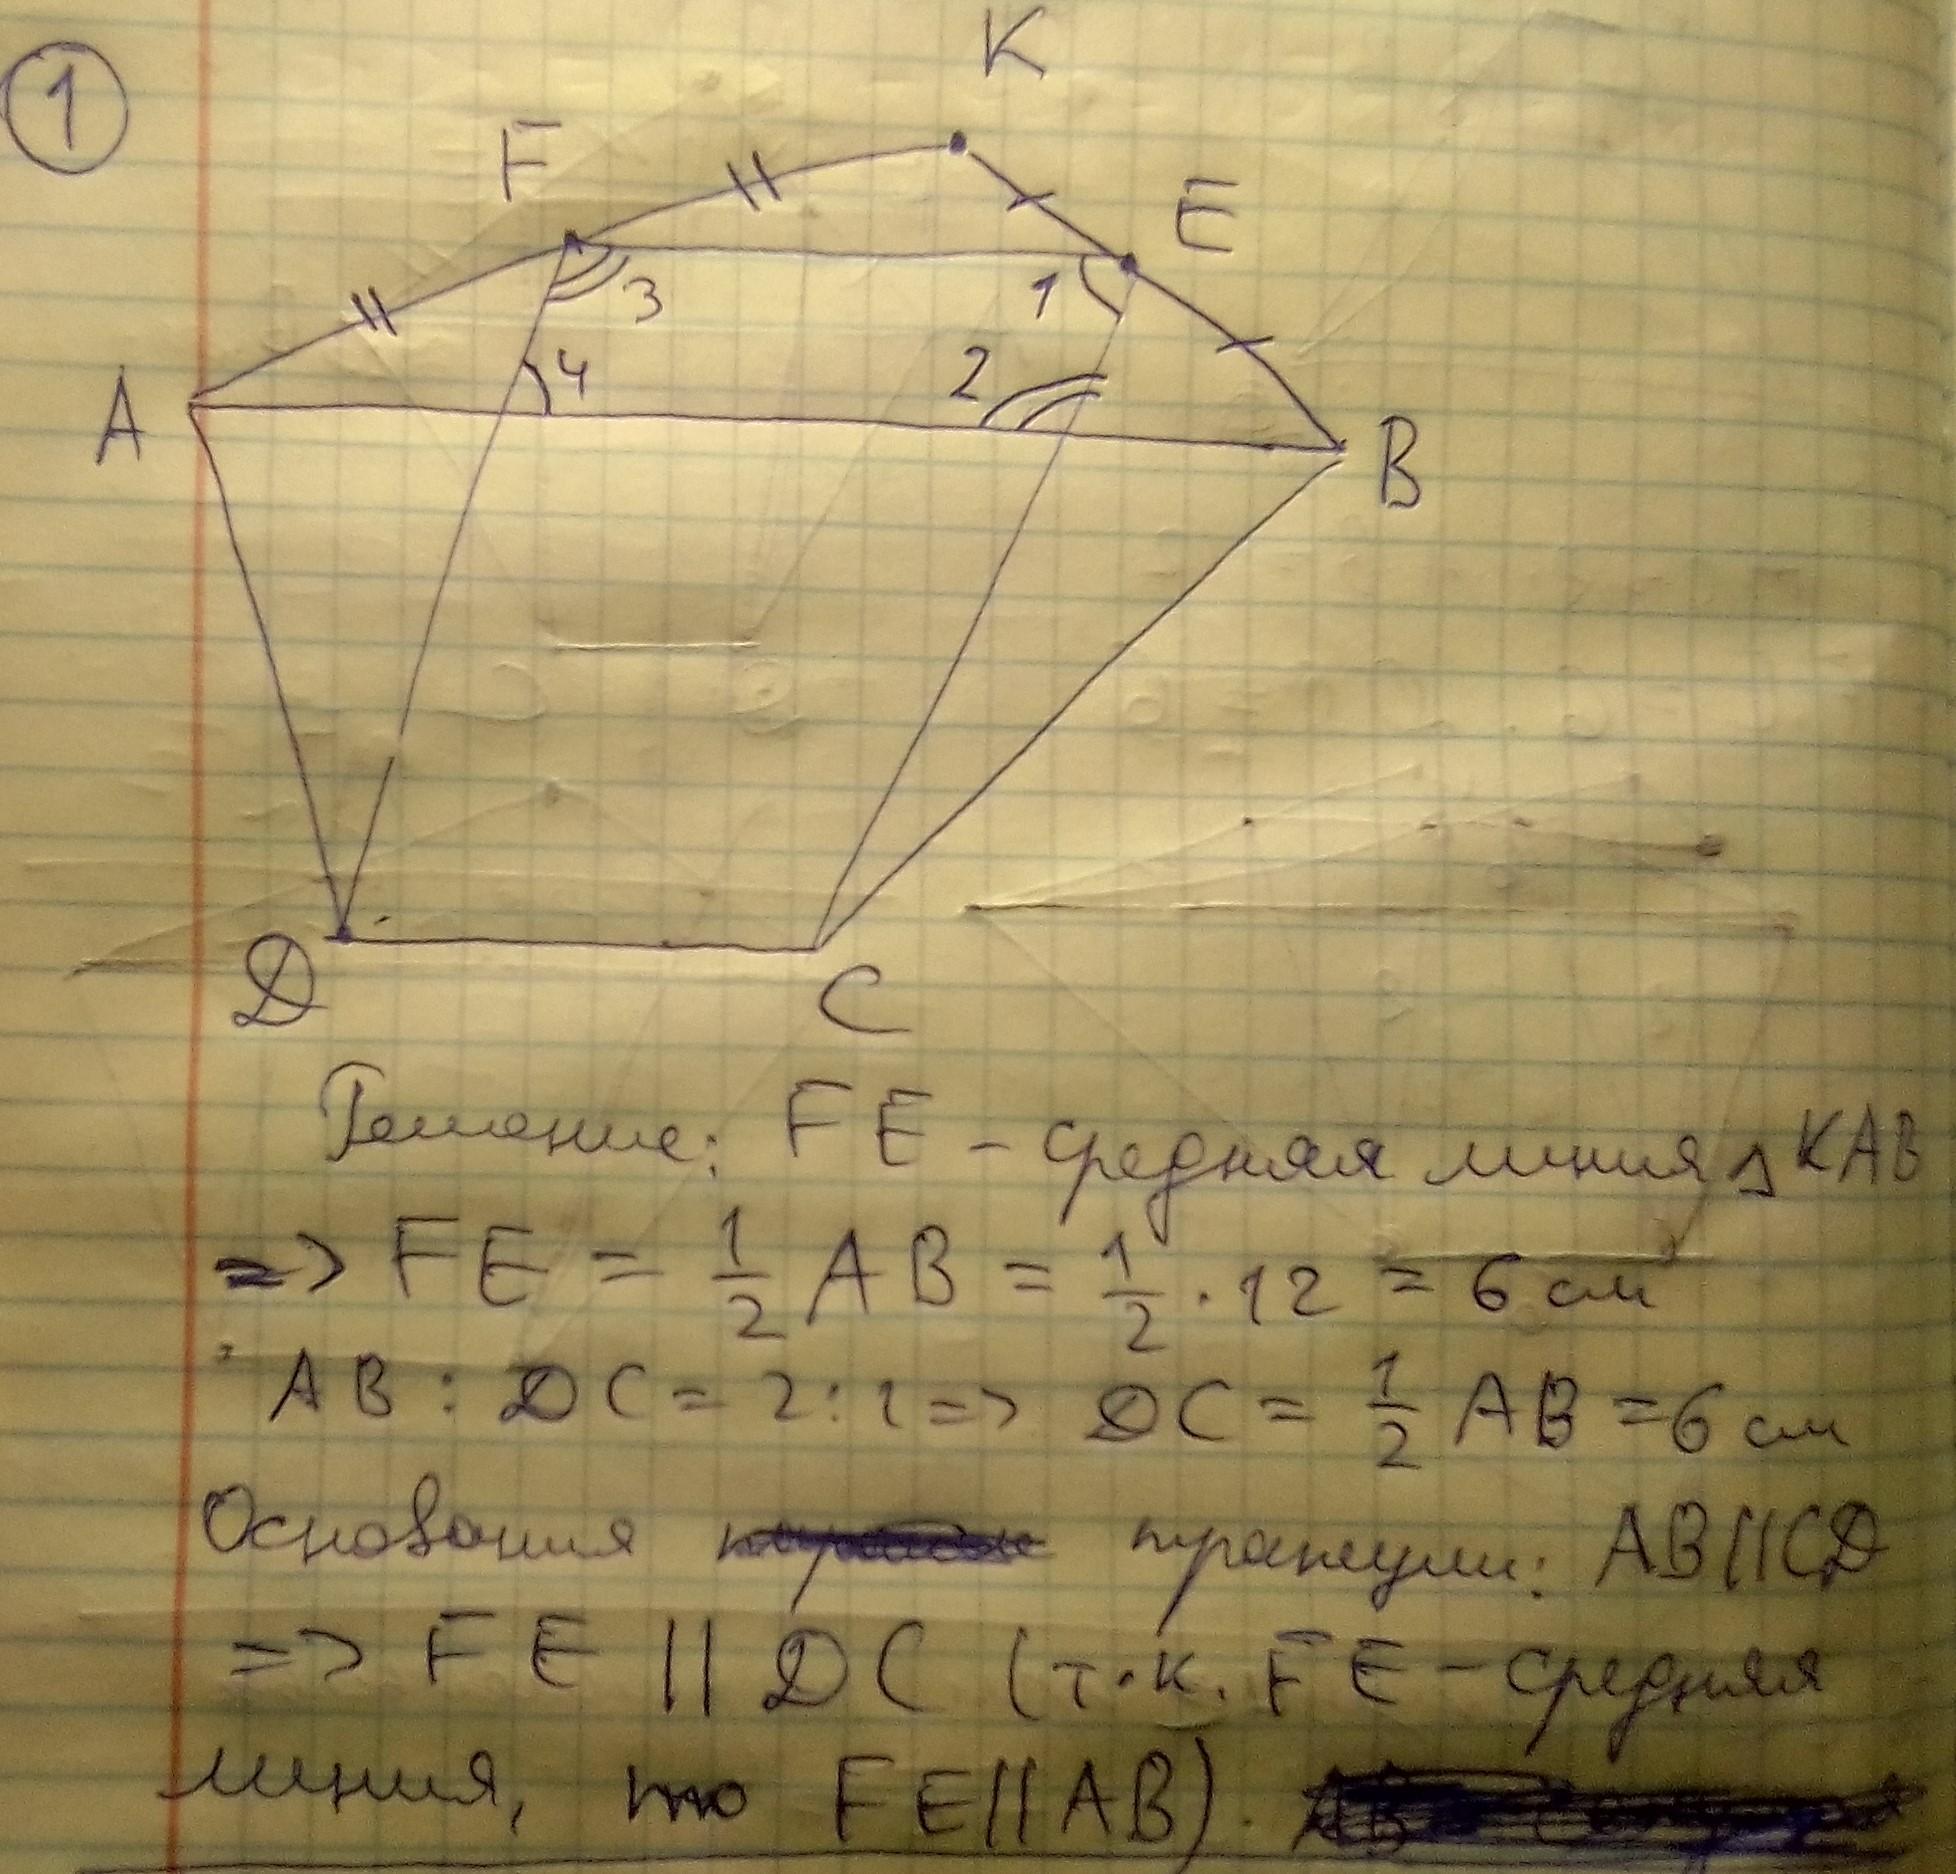 1
K
F
E
3
1
4
2
A
B
D
C
Решение: FE - средняя линия △ KAB
=> FE = 1/2 AB = 1/2 · 12 = 6 см
AB : DC = 2:1 => DC = 1/2 AB = 6 см
Основания трапеции: AB || CD
=> FE || DC (т.к. FE - средняя
линия, то FE || AB).